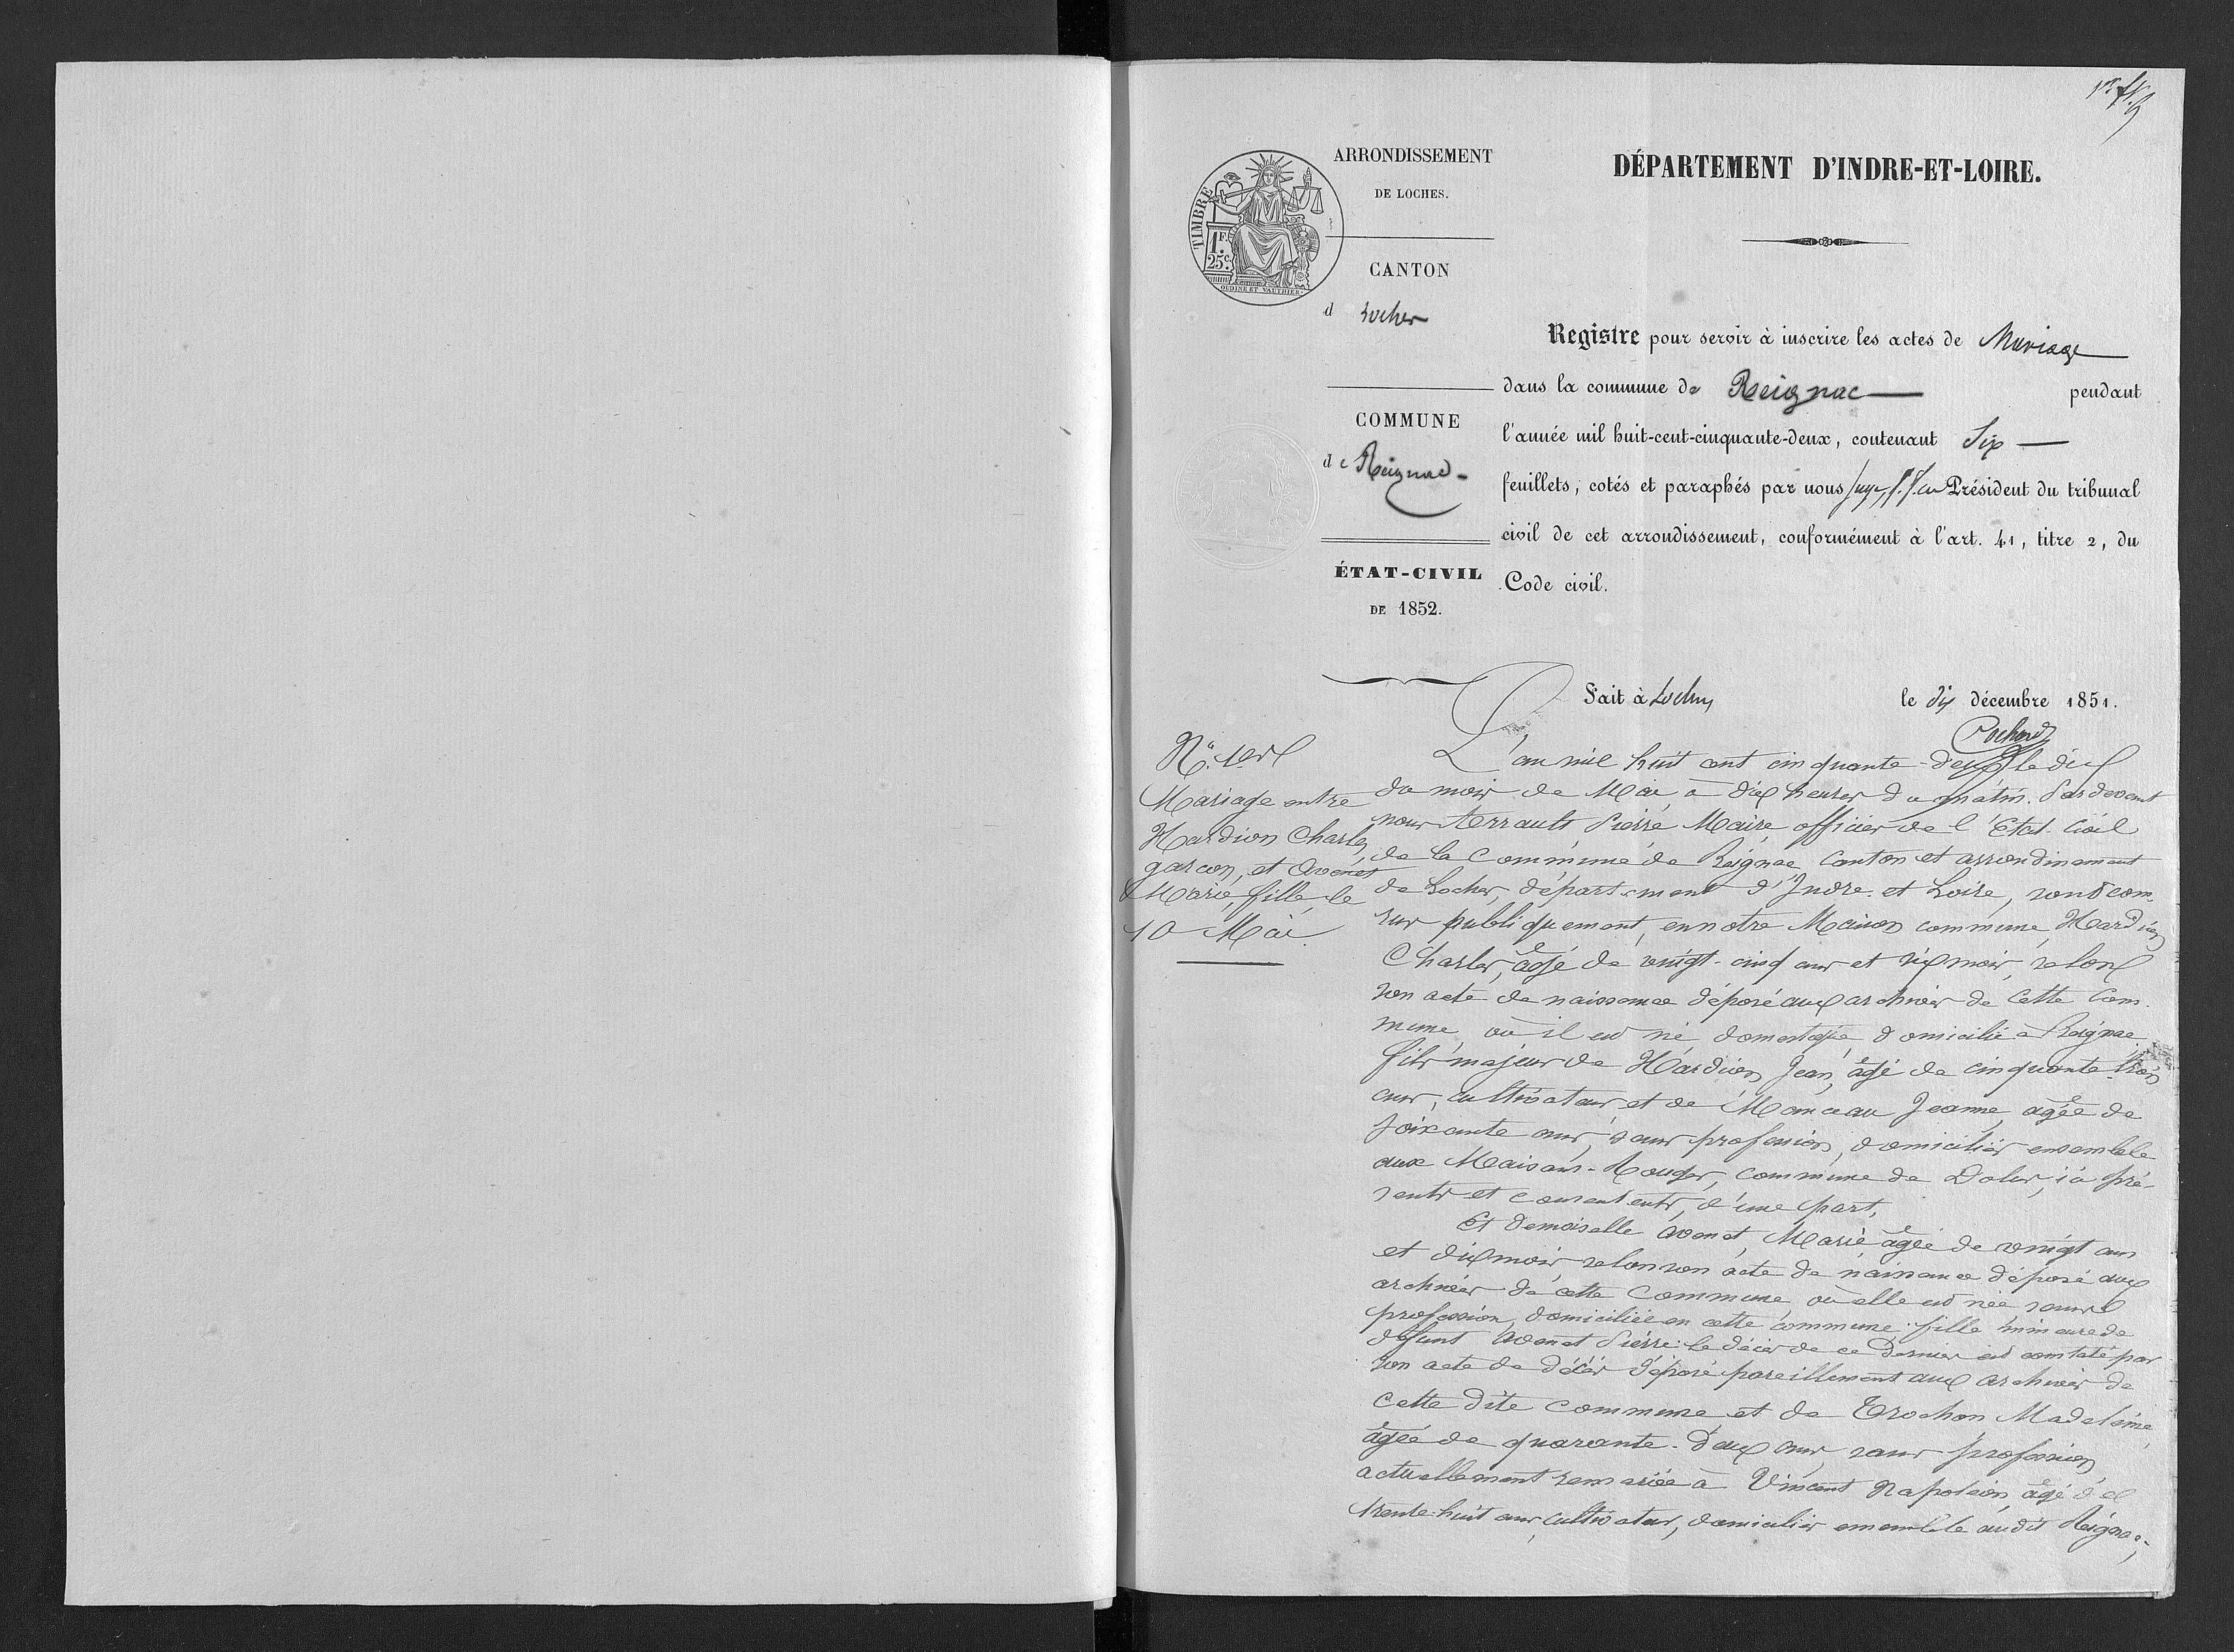 ARRONDISSEMENT
DE LOCHES.
TIMBRE
1F.
25c.
OUDINÉ ET VAUTHIER
CANTON
d Loches
COMMUNE
de Reignac
ÉTAT-CIVIL
DE 1852.
DÉPARTEMENT D'INDRE-ET-LOIRE.
Registre pour servir à inscrire les actes de Mariage
dans la commune de Reignac pendant
l'année mil huit-cent-cinquante-deux, contenant Six
feuillets, cotés et paraphés par nous Juge, f. f. de Président du tribunal
civil de cet arrondissement, conformément à l'art. 41, titre 2, du
Code civil.
Fait à Loches le dix décembre 1851.
No. 1er
Mariage entre
Hardion Charles,
garçon, et Avenet
Marie, fille, le
10 Mai.
L'an mil huit cent cinquante-deux, le dix
du mois de Mai, à dix heures du matin. Pardevant
nous Terrault Pierre Maire, officier de l'Etat-Civil
de la Commune de Reignac Canton et arrondissement
de Loches, département d'Indre-et-Loire, sont com-
rus publiquement, en notre Maison commune, Hardion
Charles, âgé de vingt-cinq ans et six mois, selon
son acte de naissance déposé aux archives de Cette Com-
mune, où il est né, domestique, domicilié à Reignac,
fils majeur de Hardion Jean, âgé de cinquante-trois
ans, cultivateur et de Manceau Jeanne, âgée de
soixante ans, sans profession, domiciliés ensemble
aux Maisons-Rouges, commune de Dolus, ici pré-
sents et consentents, d'une part,
Et demoiselle Avenet, Marie âgée de vingt ans
et dix mois selon son acte de naissance déposé aux
archives de cette Commune, où elle est née sans
profession, domiciliée en cette commune: fille mineure de
défunt Avenet Pierre: le décès de ce dernier est constaté par
son acte de décès déposé pareillement aux archives de
cette dite commune et de Trochon Madeleine,
âgée de quarante-deux ans, sans profession
actuellement remariée à Vincent Napoléon, âgé de
trente-huit ans, cultivateur, domiciliés ensemble audit Reignac;